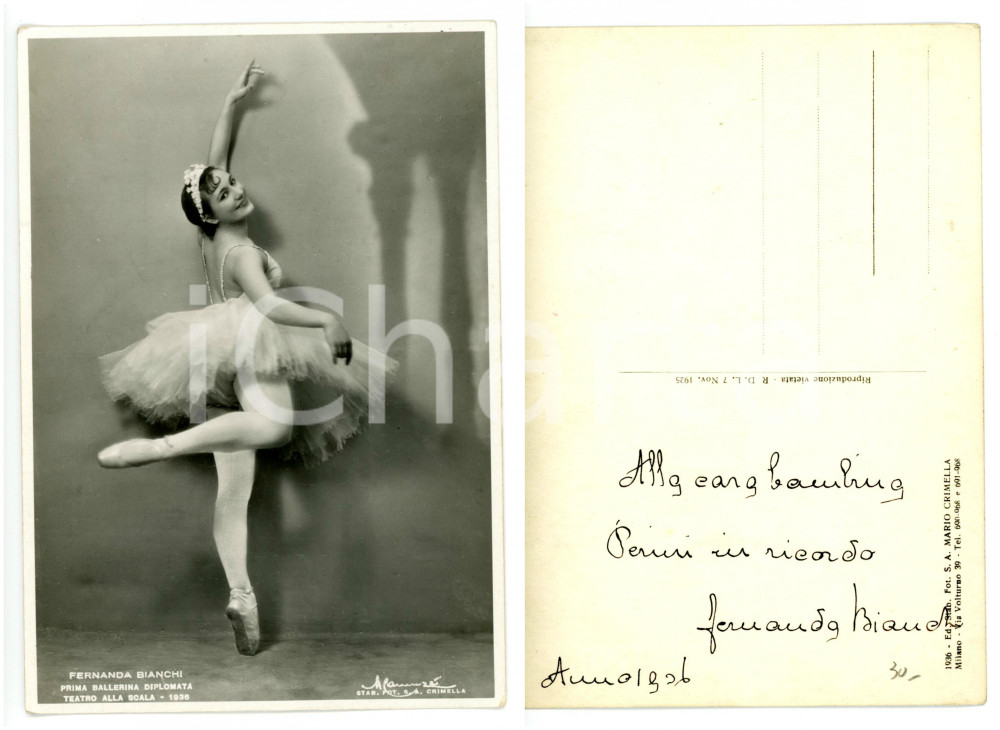 FERNANDA BIANCHI
PRIMA BALLERINA DIPLOMATA
TEATRO ALLA SCALA - 1936
STAB. FOT. S. A. CRIMELLA
iCharta
Riproduzione vietata - R. D. L. 7 Nov. 1925
Alla cara bambina
Perini in ricordo
Fernanda Bianchi
Anno 1936
30,-
1936 - Ed. Stab. Fot. S. A. MARIO CRIMELLA
Milano - Via Volturno 39 - Tel. 690-968 e 691-968